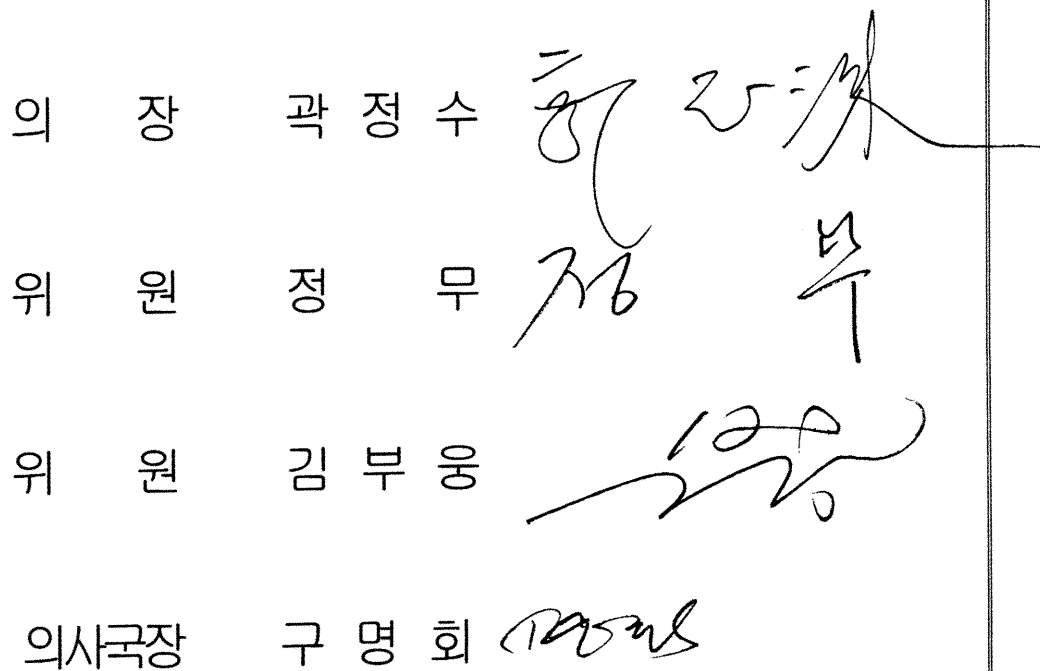 의 장 곽 정 수
위 원 정 무
위 원 김 부 웅
의사국장 구 명 회